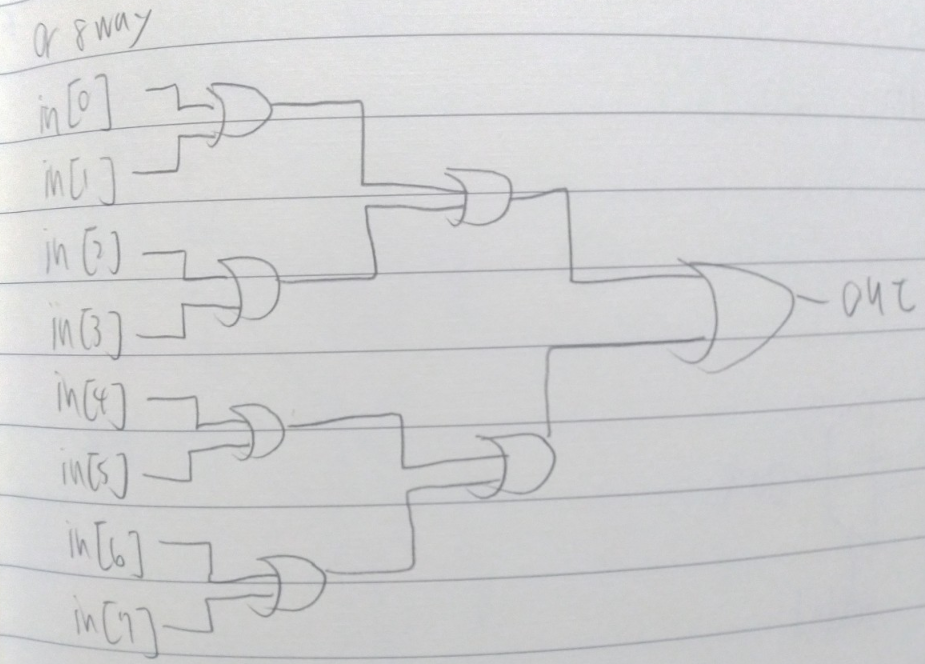 or 8way
in[0]
in[1]
in[2]
in[3]
in[4]
in[5]
in[6]
in[7]
out